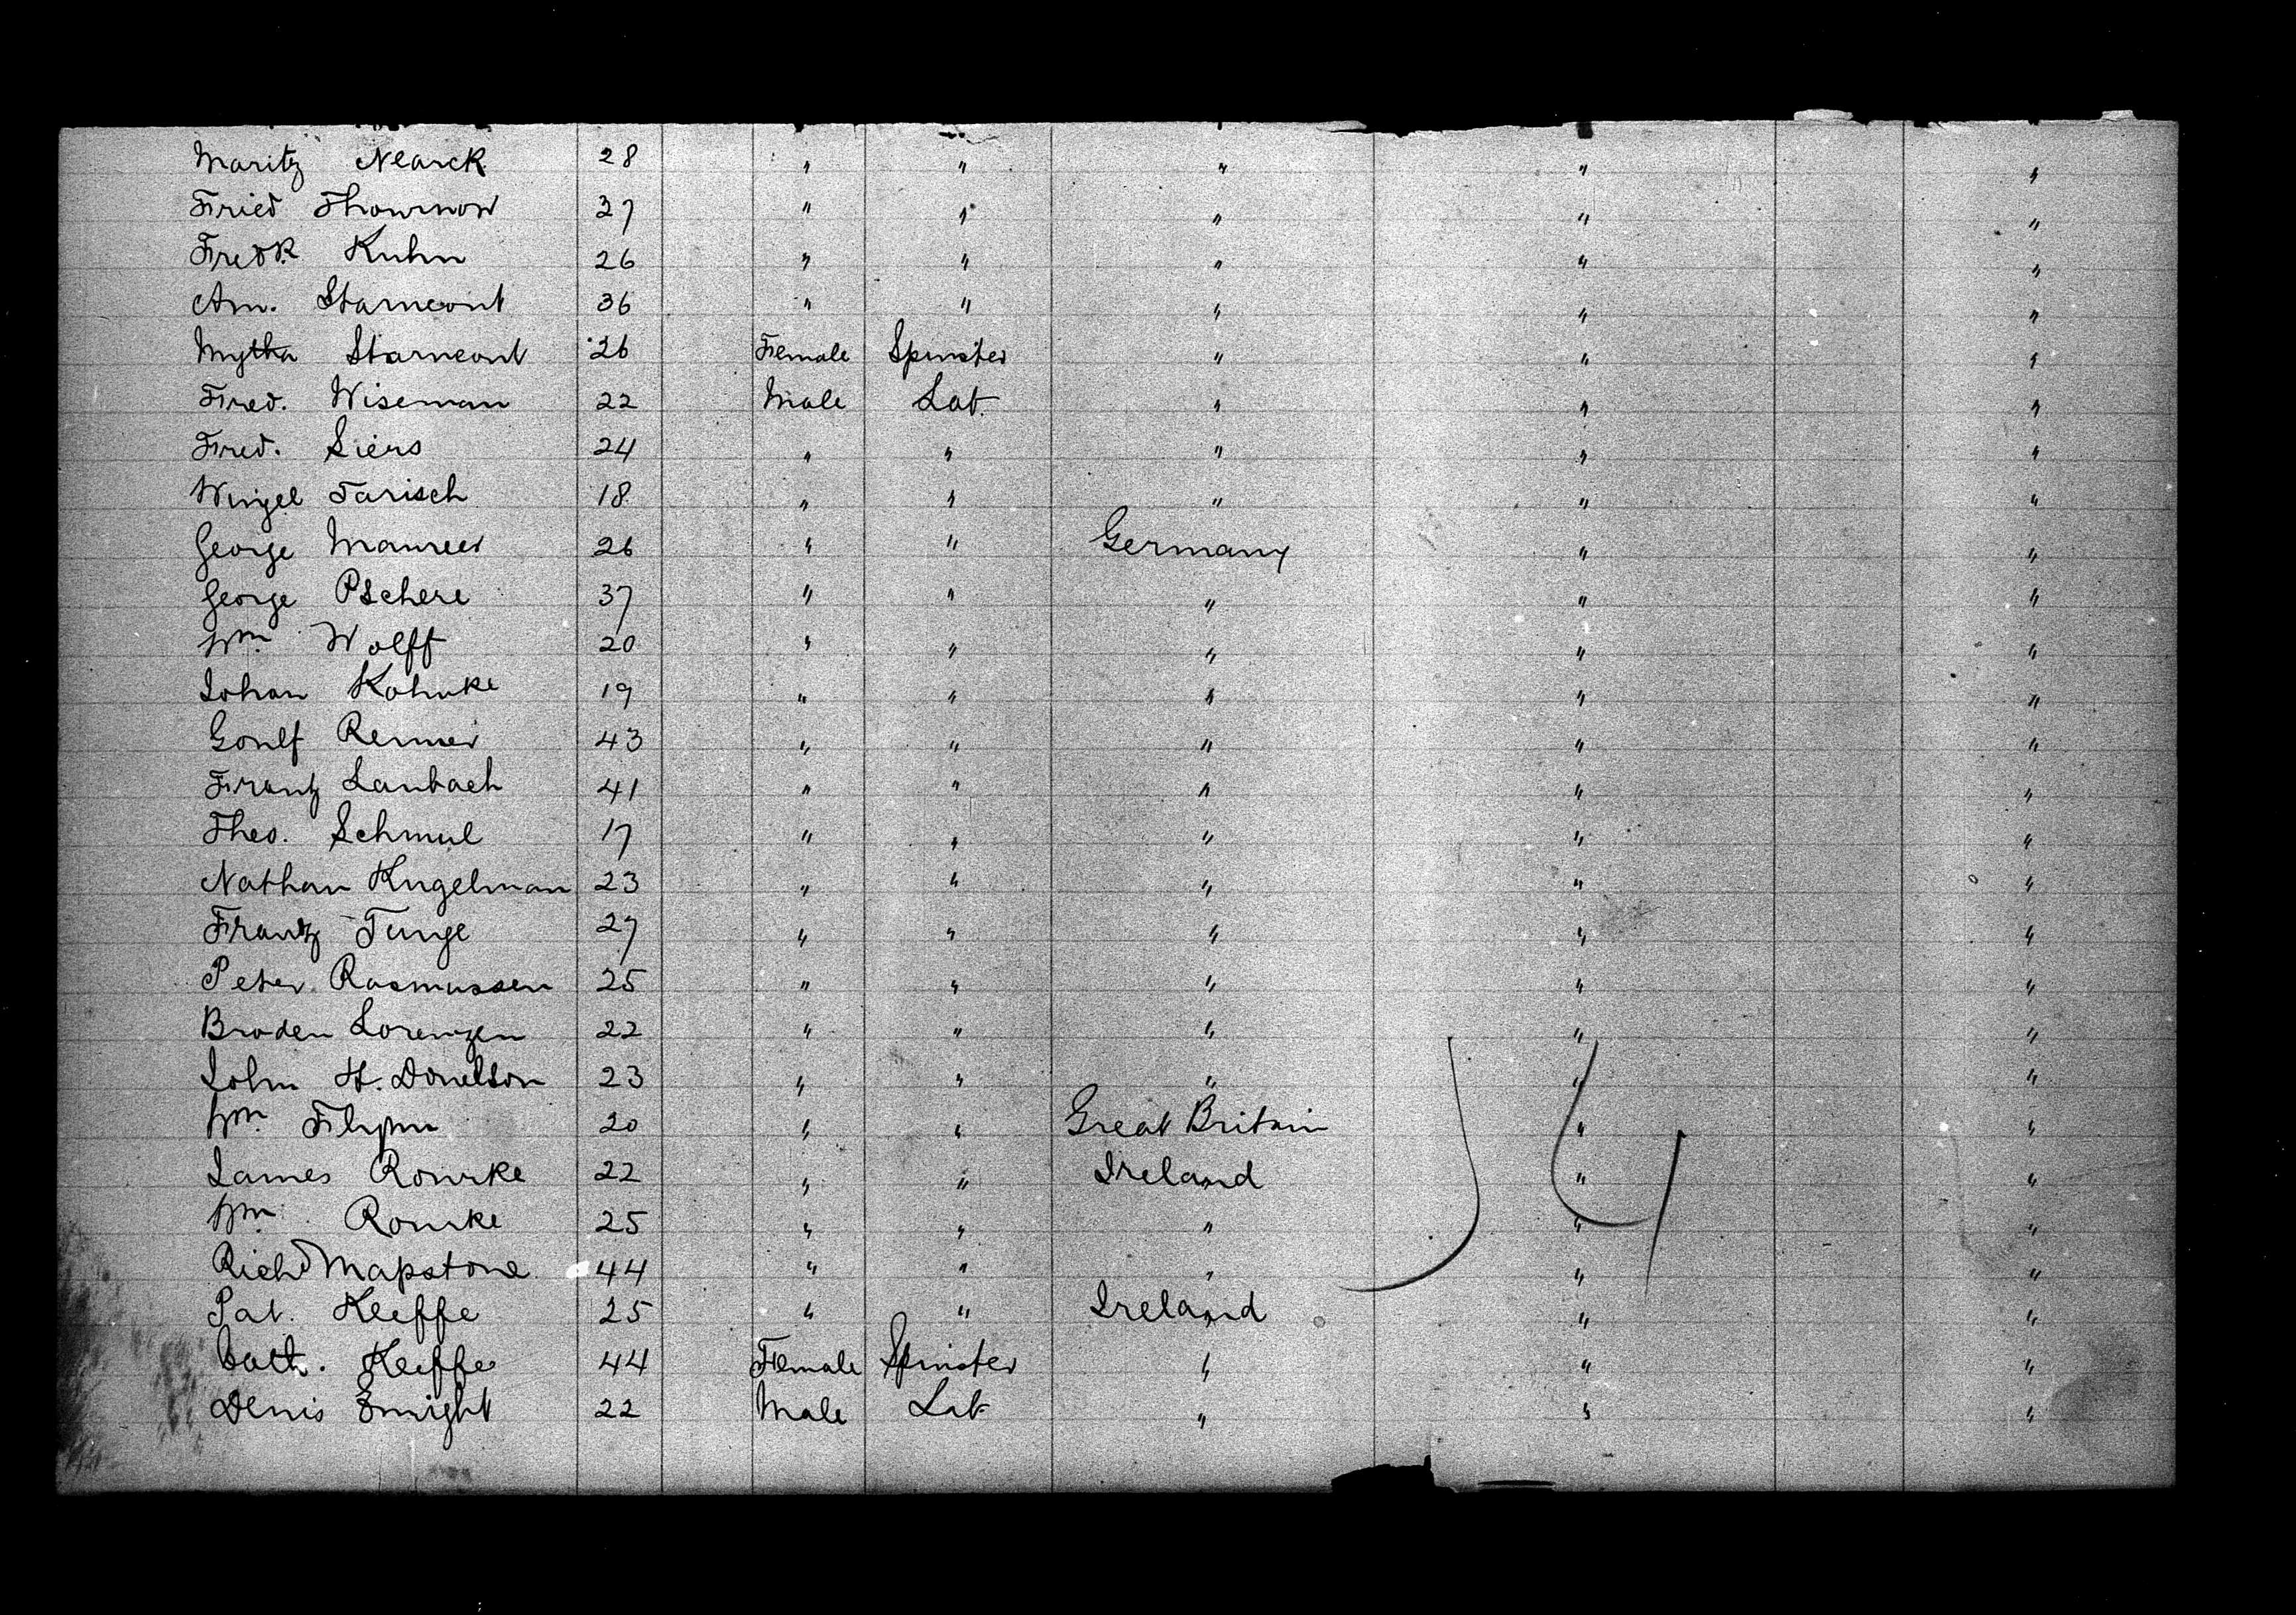 Moritz Nearck 28 " " " " "
Fried Thournow 37 " " " " "
Fredk Kuhn 26 " " " " "
Am. Starneont 36 " " " " "
Mytha Starneont 26 Female Spinster " " "
Fred. Wiseman 22 Male Lab. " " "
Fred. Siers 24 " " " " "
Wingel Tarisch 18 " " " " "
George Maurer 26 " " Germany " "
George Pschere 37 " " " " "
Wm. Wolff 20 " " " " "
Johan Kohnke 19 " " " " "
Gonlf Renner 43 " " " " "
Frantz Laubach 41 " " " " "
Theo. Schmul 17 " " " " "
Nathan Kugelman 23 " " " " "
Frantz Junge 27 " " " " "
Peter Rasmussen 25 " " " " "
Broden Lorenzen 22 " " " " "
John H. Donelson 23 " " " " "
Wm. Flynn 20 " " Great Britain " "
James Rourke 22 " " Ireland " "
Wm. Rourke 25 " " " " "
Richd Mapstone 44 " " " " "
Pat. Keeffe 25 " " Ireland " "
Cath. Keeffe 44 Female Spinster " " "
Denis Enright 22 Male Lab " " "